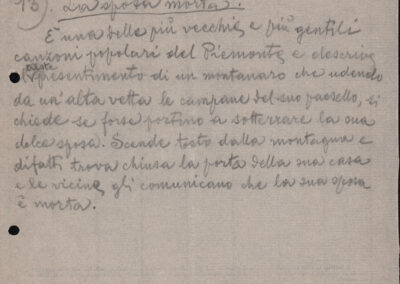 13). La sposa morta.
È una delle più vecchie e più gentili
canzoni popolari del Piemonte e descrive
il triste presentimento di un montanaro che udendo
da un'alta vetta le campane del suo paesello, si
chiede se forse portino a sotterrare la sua
dolce sposa. Scende tosto dalla montagna e
difatti trova chiusa la porta della sua casa
e le vicine gli comunicano che la sua sposa
è morta.